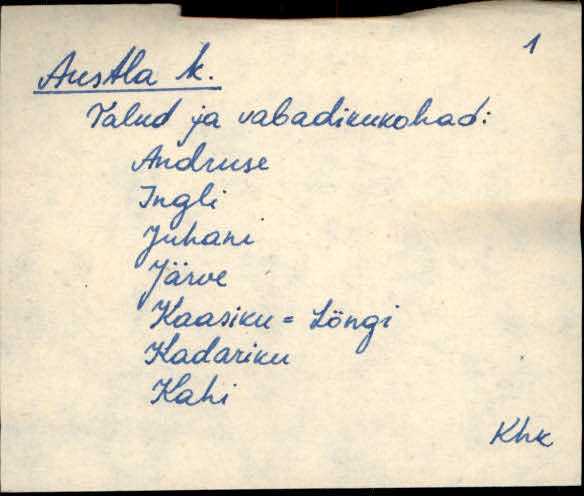 1
Austla k.
Talud ja vabadikukohad:
Andruse
Ingli
Juhani
Järve
Kaasiku = Löngi
Kadariku
Kahi
Khk